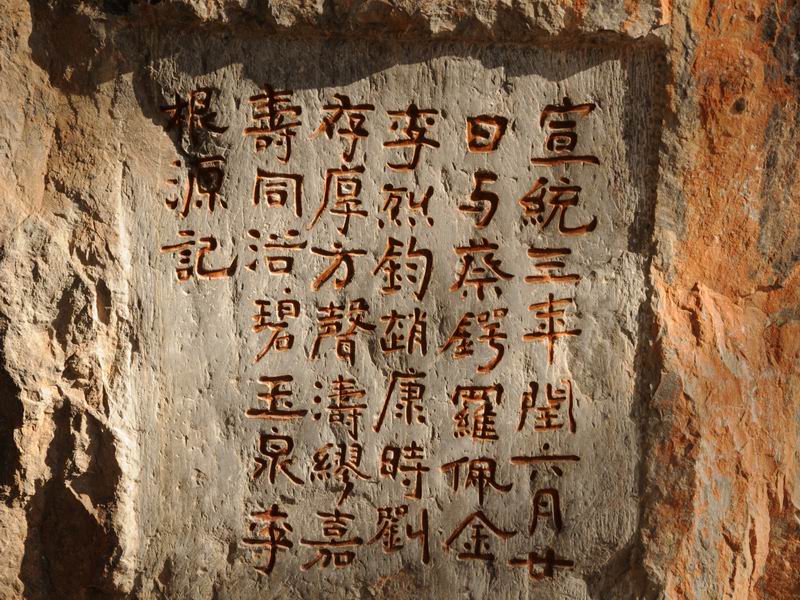 宣統三年閏六月廿
日与蔡鍔羅佩金
李烈鈞趙康時劉
存厚方聲濤繆嘉
壽同浴碧玉泉李
根源記